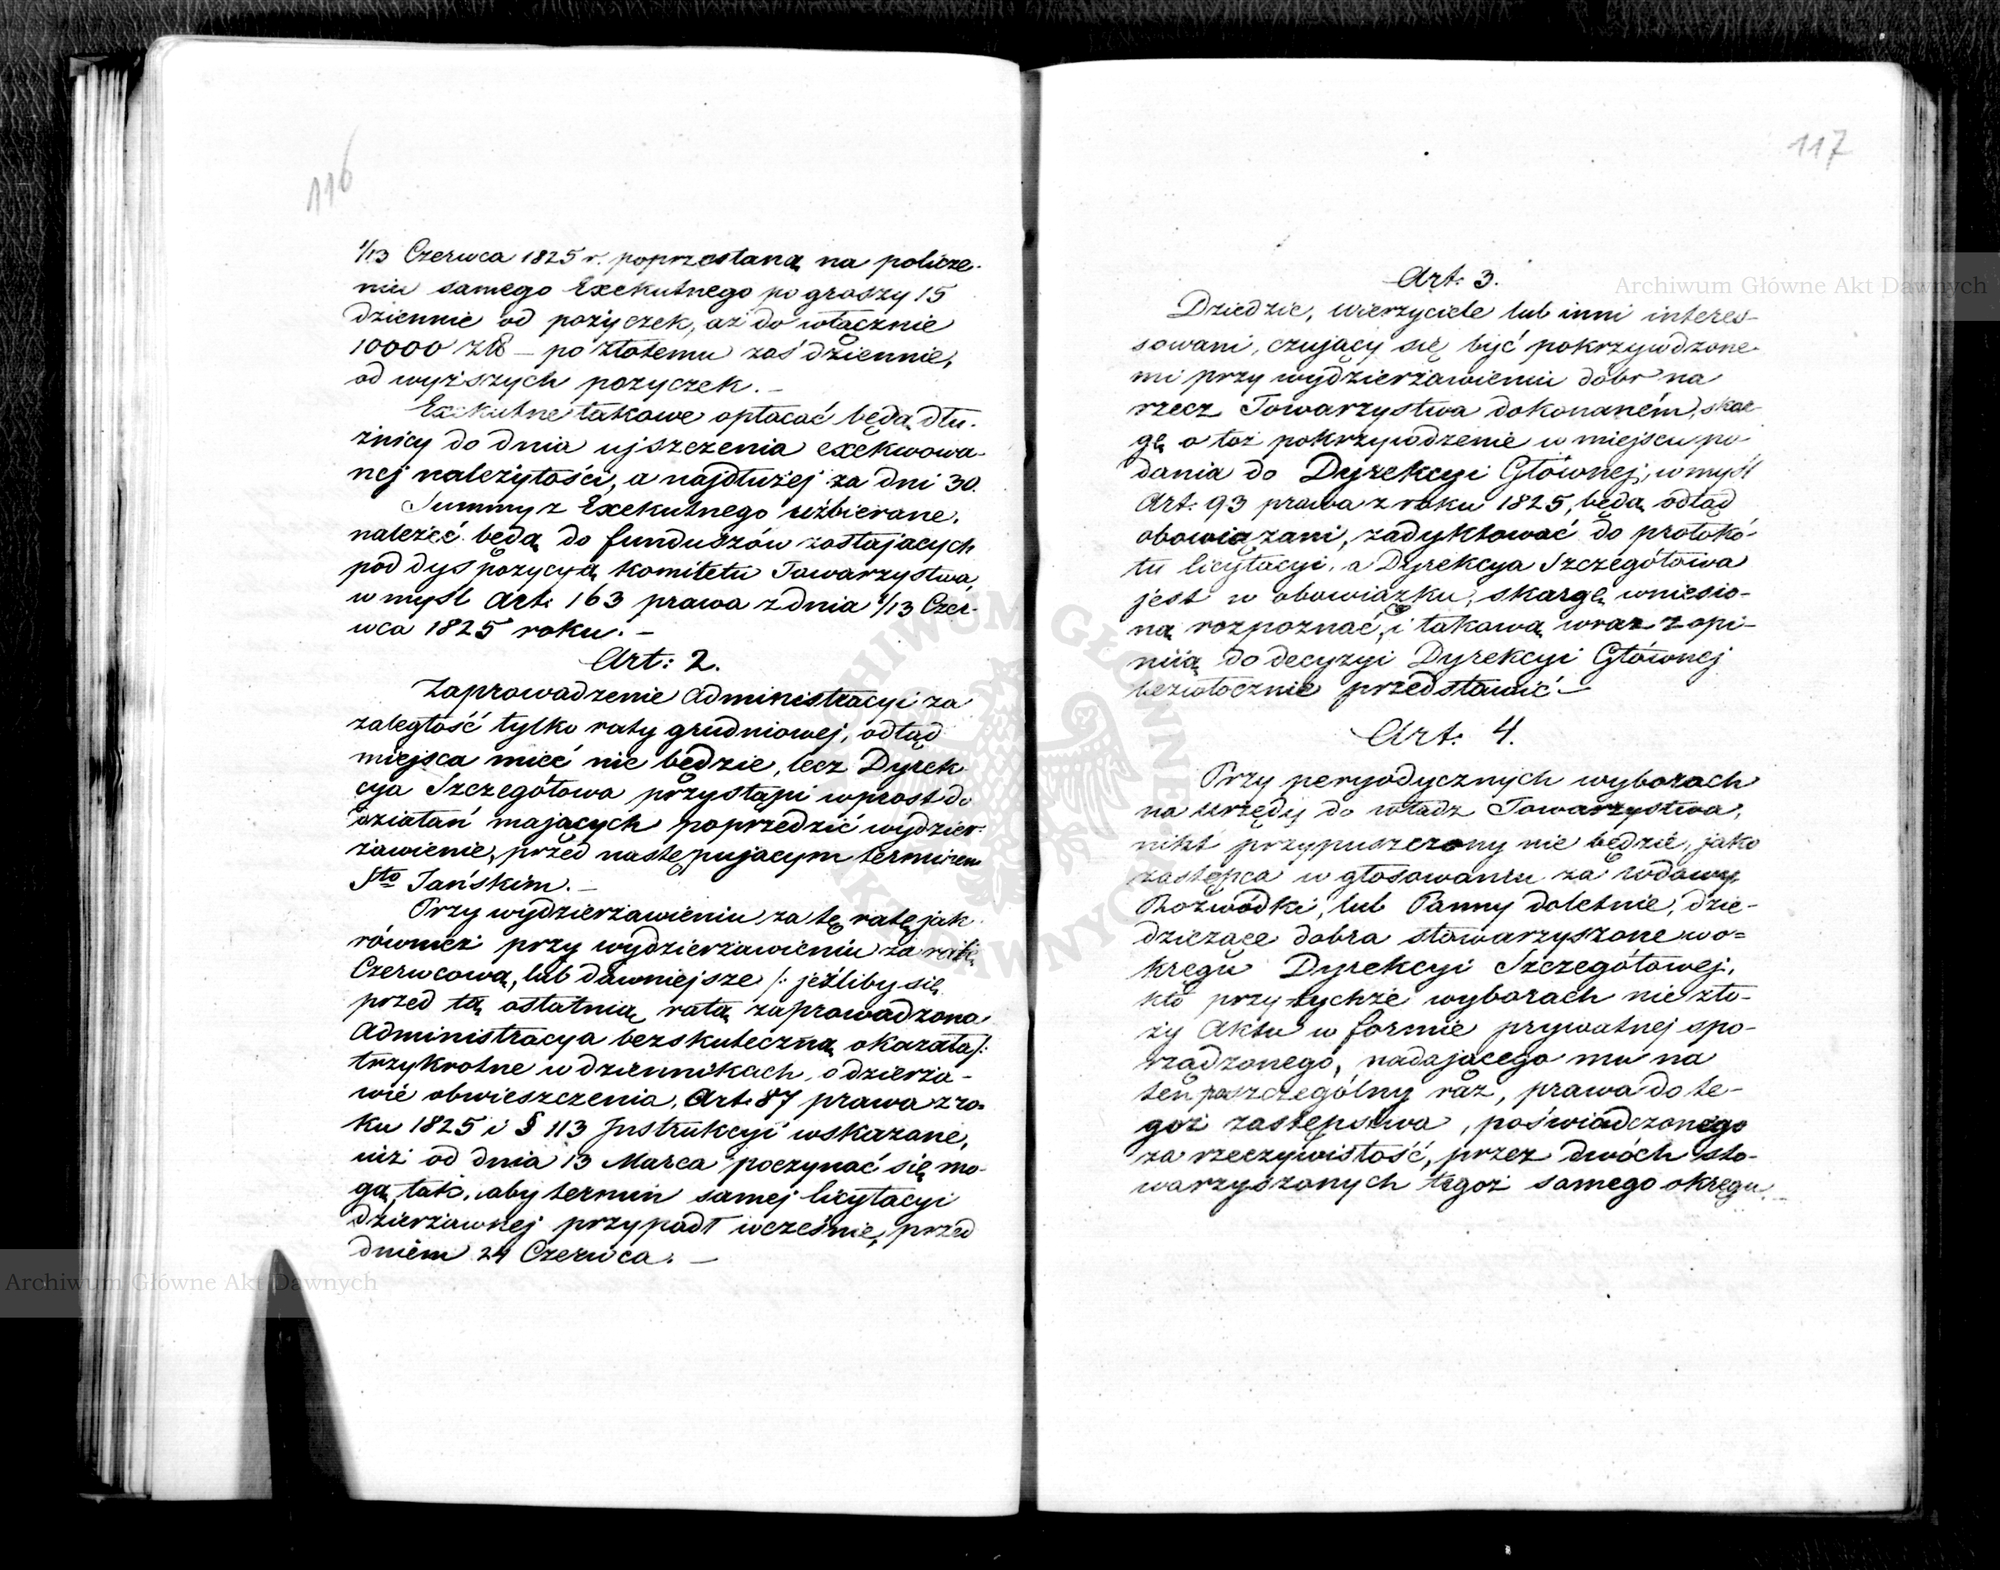 116
1/13 Czerwca 1825 r. poprzestaną na policze-
niu samego Exekutnego po groszy 15
dziennie od pożyczek, aż do włącznie
10000 złł — po złotemu zaś dziennie,
od wyższych pożyczek. —
Exekutne takowe opłacać będą dłu-
żnicy do dnia ujszczenia exekwowa-
nej należytości, a najdłużej za dni 30.
Summy z Exekutnego uzbierane,
należeć będą do funduszów zostających
pod dyspozycyą Komitetu Towarzystwa
w myśl Art: 163 prawa z dnia 1/13 Czer-
wca 1825 roku. —
Art: 2.
Zaprowadzenie Administracyi za
zaległość tylko raty grudniowej, odtąd
miejsca mieć nie będzie, lecz Dyrek-
cya Szczegółowa przystąpi wprost do
działań mających poprzedzić wydzier-
żawienie, przed następującym terminem
Sto Jańskim. —
Przy wydzierżawieniu za tę ratę jak
również przy wydzierżawieniu za ratę
Czerwcową, lub dawniejsze /: jeżliby się
przed tą ostatnią ratą zaprowadzona
Administracya bezskuteczną okazała :/
trzykrotne w dziennikach, o dzierża-
wie obwieszczenia, Art: 87 prawa z ro-
ku 1825 i § 113 Instrukcyi wskazane,
już od dnia 13 Marca poczynać się mo-
gą, tak, aby termin samej licytacyi
dzierżawnej przypadł wcześnie, przed
dniem 24 Czerwca. —
117
Art: 3.
Dziedzice, wierzyciele lub inni interes-
sowani, czujący się być pokrzywdzone-
mi przy wydzierżawieniu dóbr na
rzecz Towarzystwa dokonaném, skar-
gę o toż pokrzywdzenie w miejscu po-
dania do Dyrekcyi Głównej, w myśl
Art: 93 prawa z roku 1825, będą odtąd
obowiązani, zadyktować do protokó-
łu licytacyi, a Dyrekcya Szczegółowa
jest w obowiązku, skargę wniesio-
ną rozpoznać, i takową wraz z opi-
niią do decyzyi Dyrekcyi Głównej
bezzwłocznie przedstawić —
Art: 4.
Przy peryodycznych wyborach
na urzędy do władz Towarzystwa,
nikt przypuszczony nie będzie, jako
zastępca w głosowaniu za wdowy
Rozwódki, lub Panny doletnie, dzie-
dziczące dobra stowarzyszone w o=
kręgu Dyrekcyi Szczegółowej,
kto przy tychże wyborach nie zło-
ży Aktu w formie prywatnej spo-
rządzonego, nadającego mu na
ten poszczególny raz, prawa do te-
goż zastępstwa, poświadczonego
za rzeczywistość, przez dwóch sto-
warzyszonych tegoż samego okręgu. —
Archiwum Główne Akt Dawnych
Archiwum Główne Akt Dawnych
ARCHIWUM GŁÓWNE AKT DAWNYCH